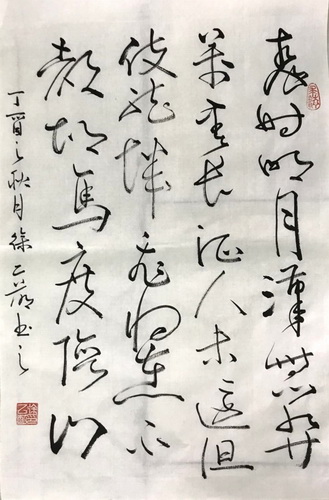 秦时明月漢時關
萬里长征人未還但
使龙城飛将在不
教胡馬度陰山
丁酉之秋月徐乙书之